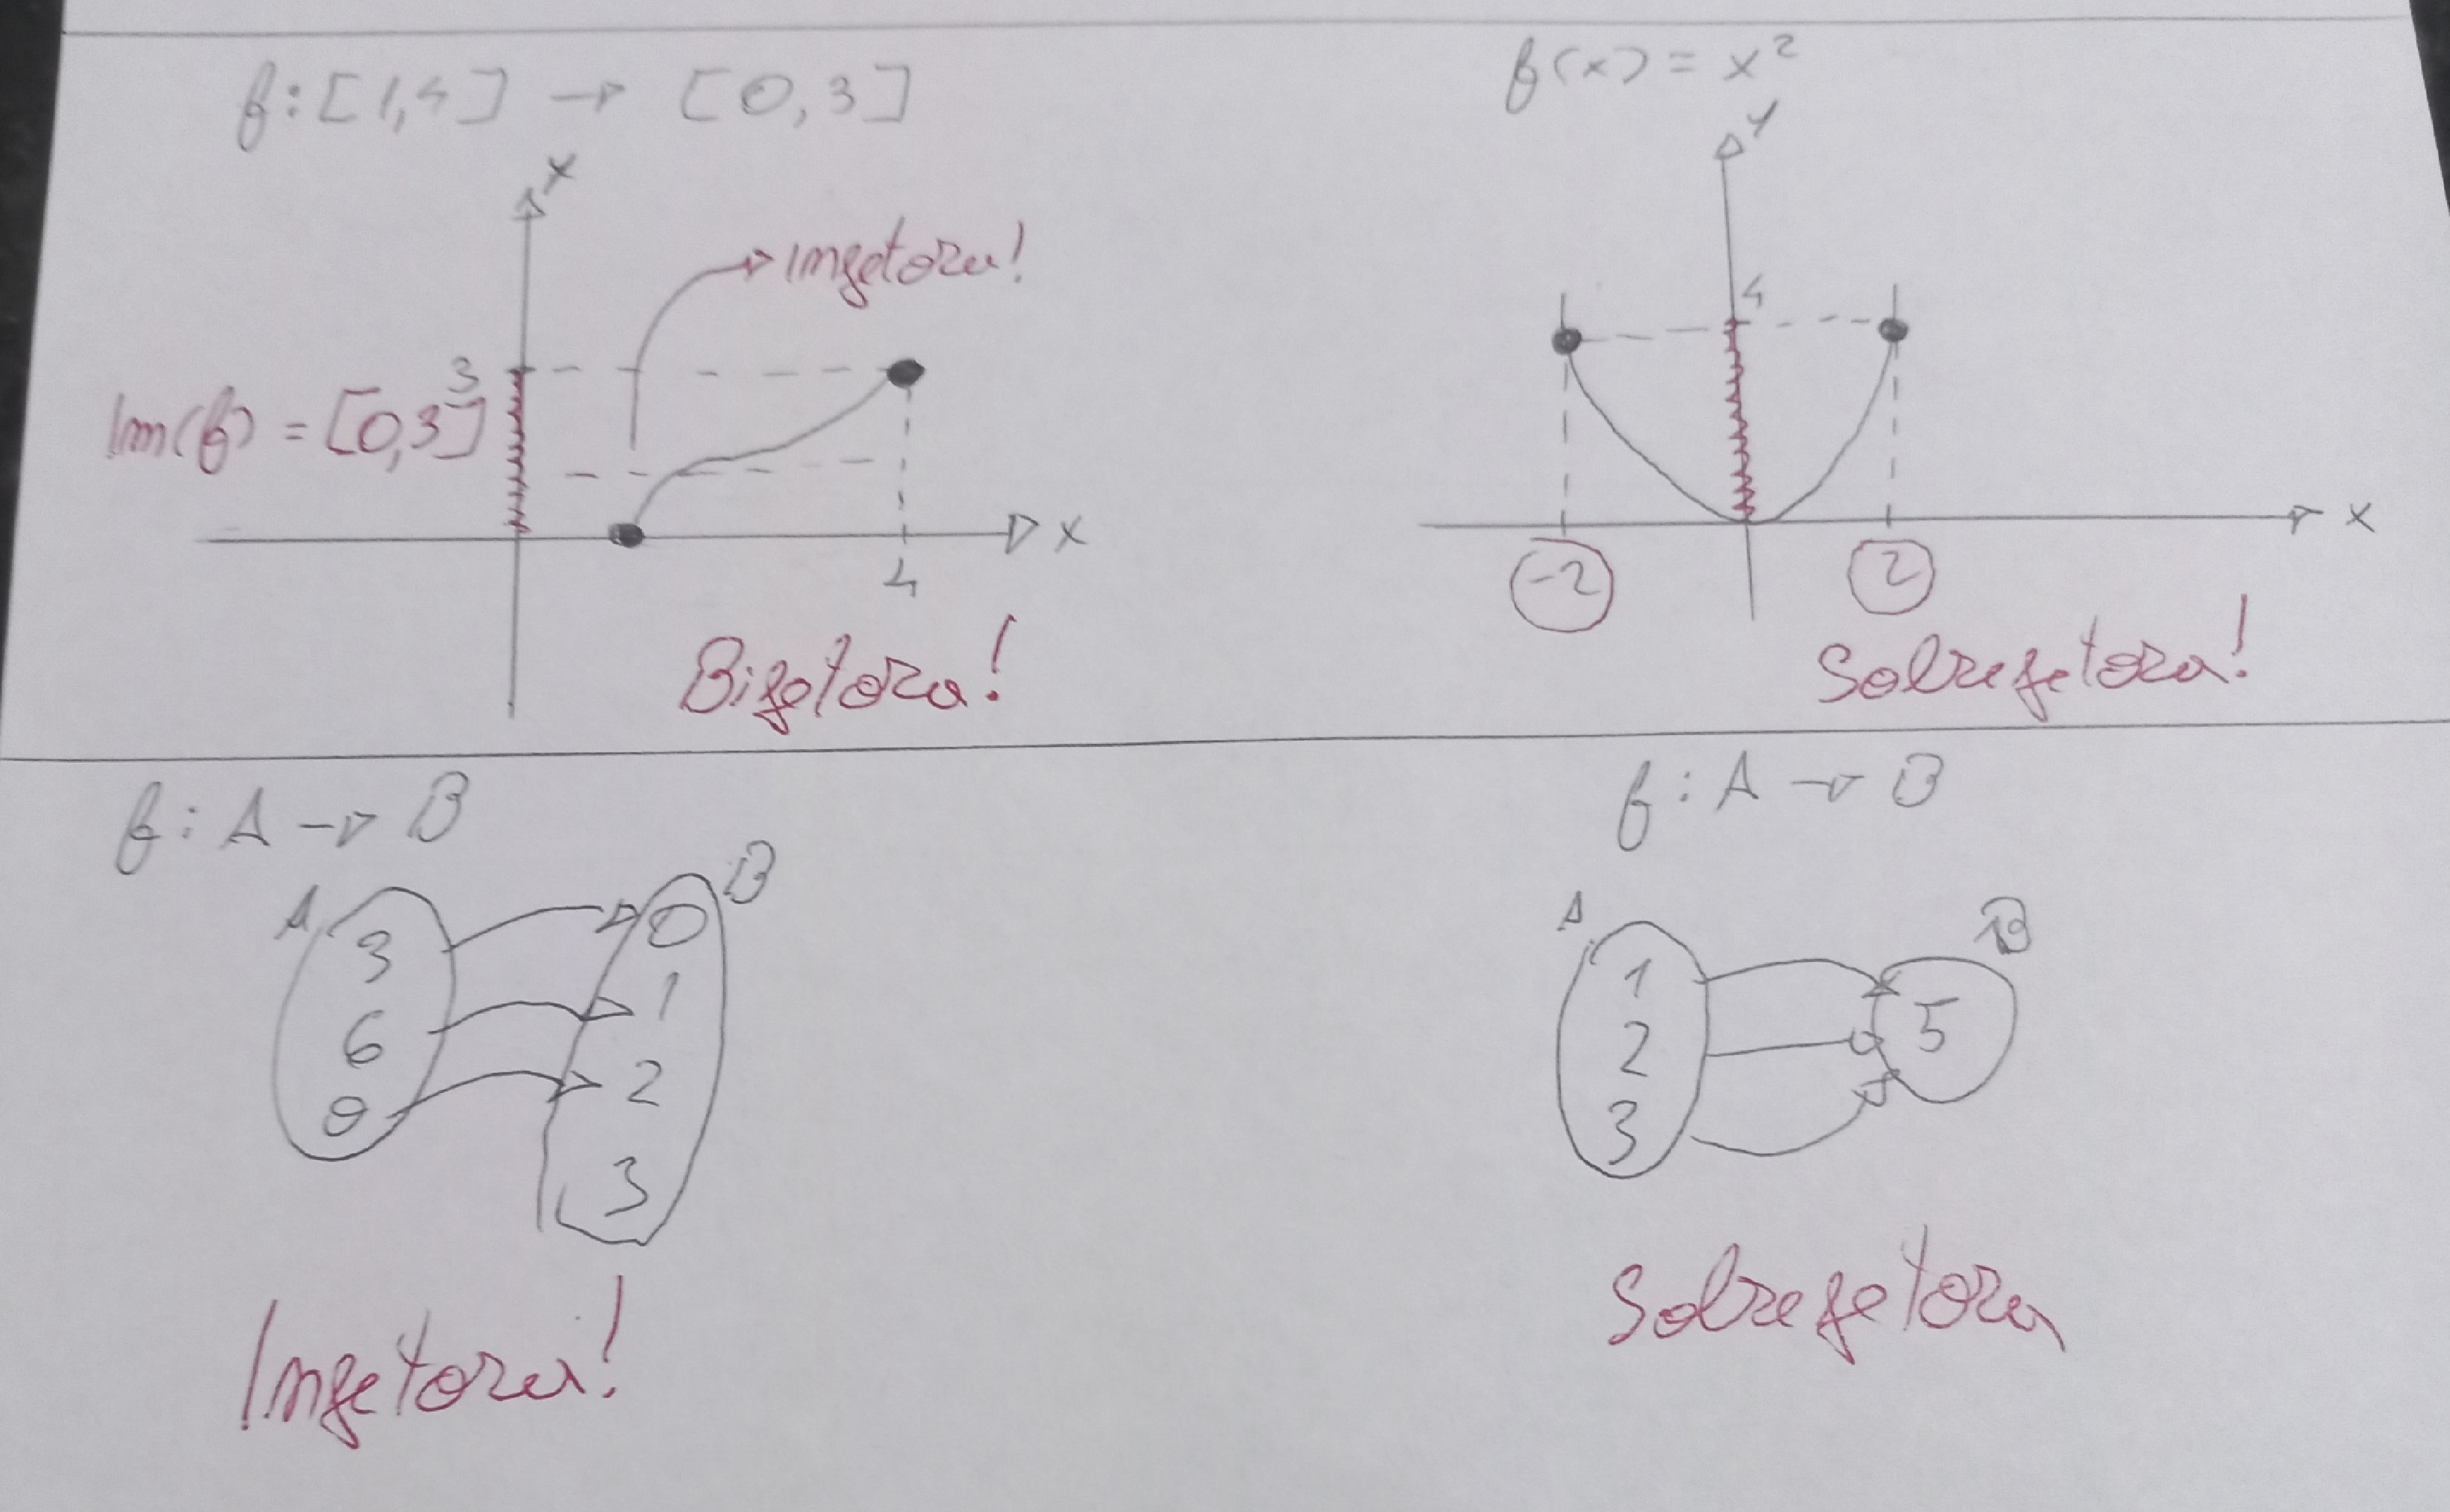 f: [1,4] → [0,3]
x
Injetora!
3
Im(f) = [0,3]
x
4
Bijetora!
f(x) = x²
y
4
x
-2
2
Sobrejetora!
f: A → B
A
B
3
6
0
0
1
2
3
Injetora!
f: A → B
A
B
1
2
3
5
Sobrejetora